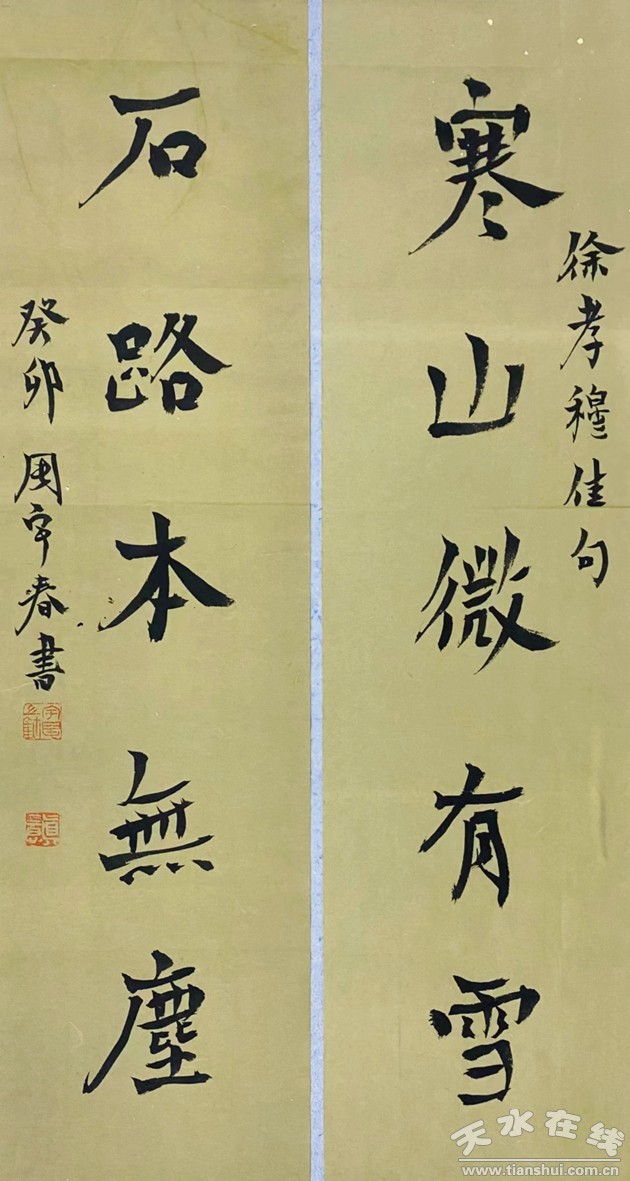 徐孝穆佳句
寒山微有雪
石路本無塵
癸卯 周宇春書
天水在线
www.tianshui.com.cn